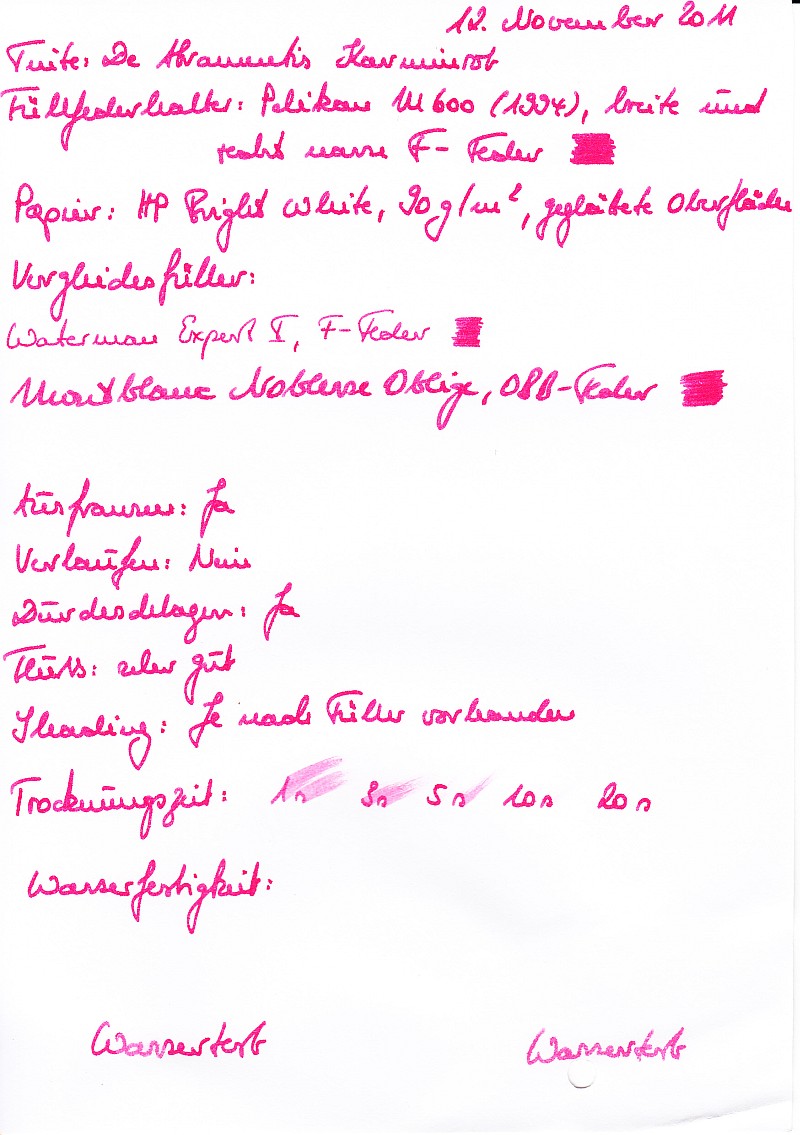 12. November 2011
Tinte: De Atramentis Karminrot
Füllfederhalter: Pelikan M 600 (1994), breite und
recht nasse F-Feder
Papier: HP Bright White, 90g/m², geglättete Oberfläche
Vergleichsfüller:
Waterman Expert I, F-Feder
Montblanc Noblesse Oblige, OBB-Feder
Ausfransen: Ja
Verlaufen: Nein
Durchschlagen: Ja
Fluss: sehr gut
Shading: Je nach Füller vorhanden
Trocknungszeit: 1s 3s 5s 10s 20s
Wasserfestigkeit:
Wassertest Wassertest